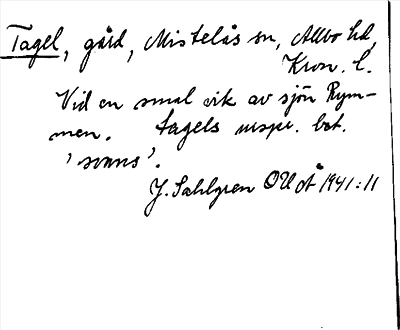 Tagel, gård, Mistelås sn, Allbo hd,
Kron. l.
Vid en smal vik av sjön Rym-
men. Tagels urspr. bet.
'svans'.
J. Sahlgren OUÅ 1941:11